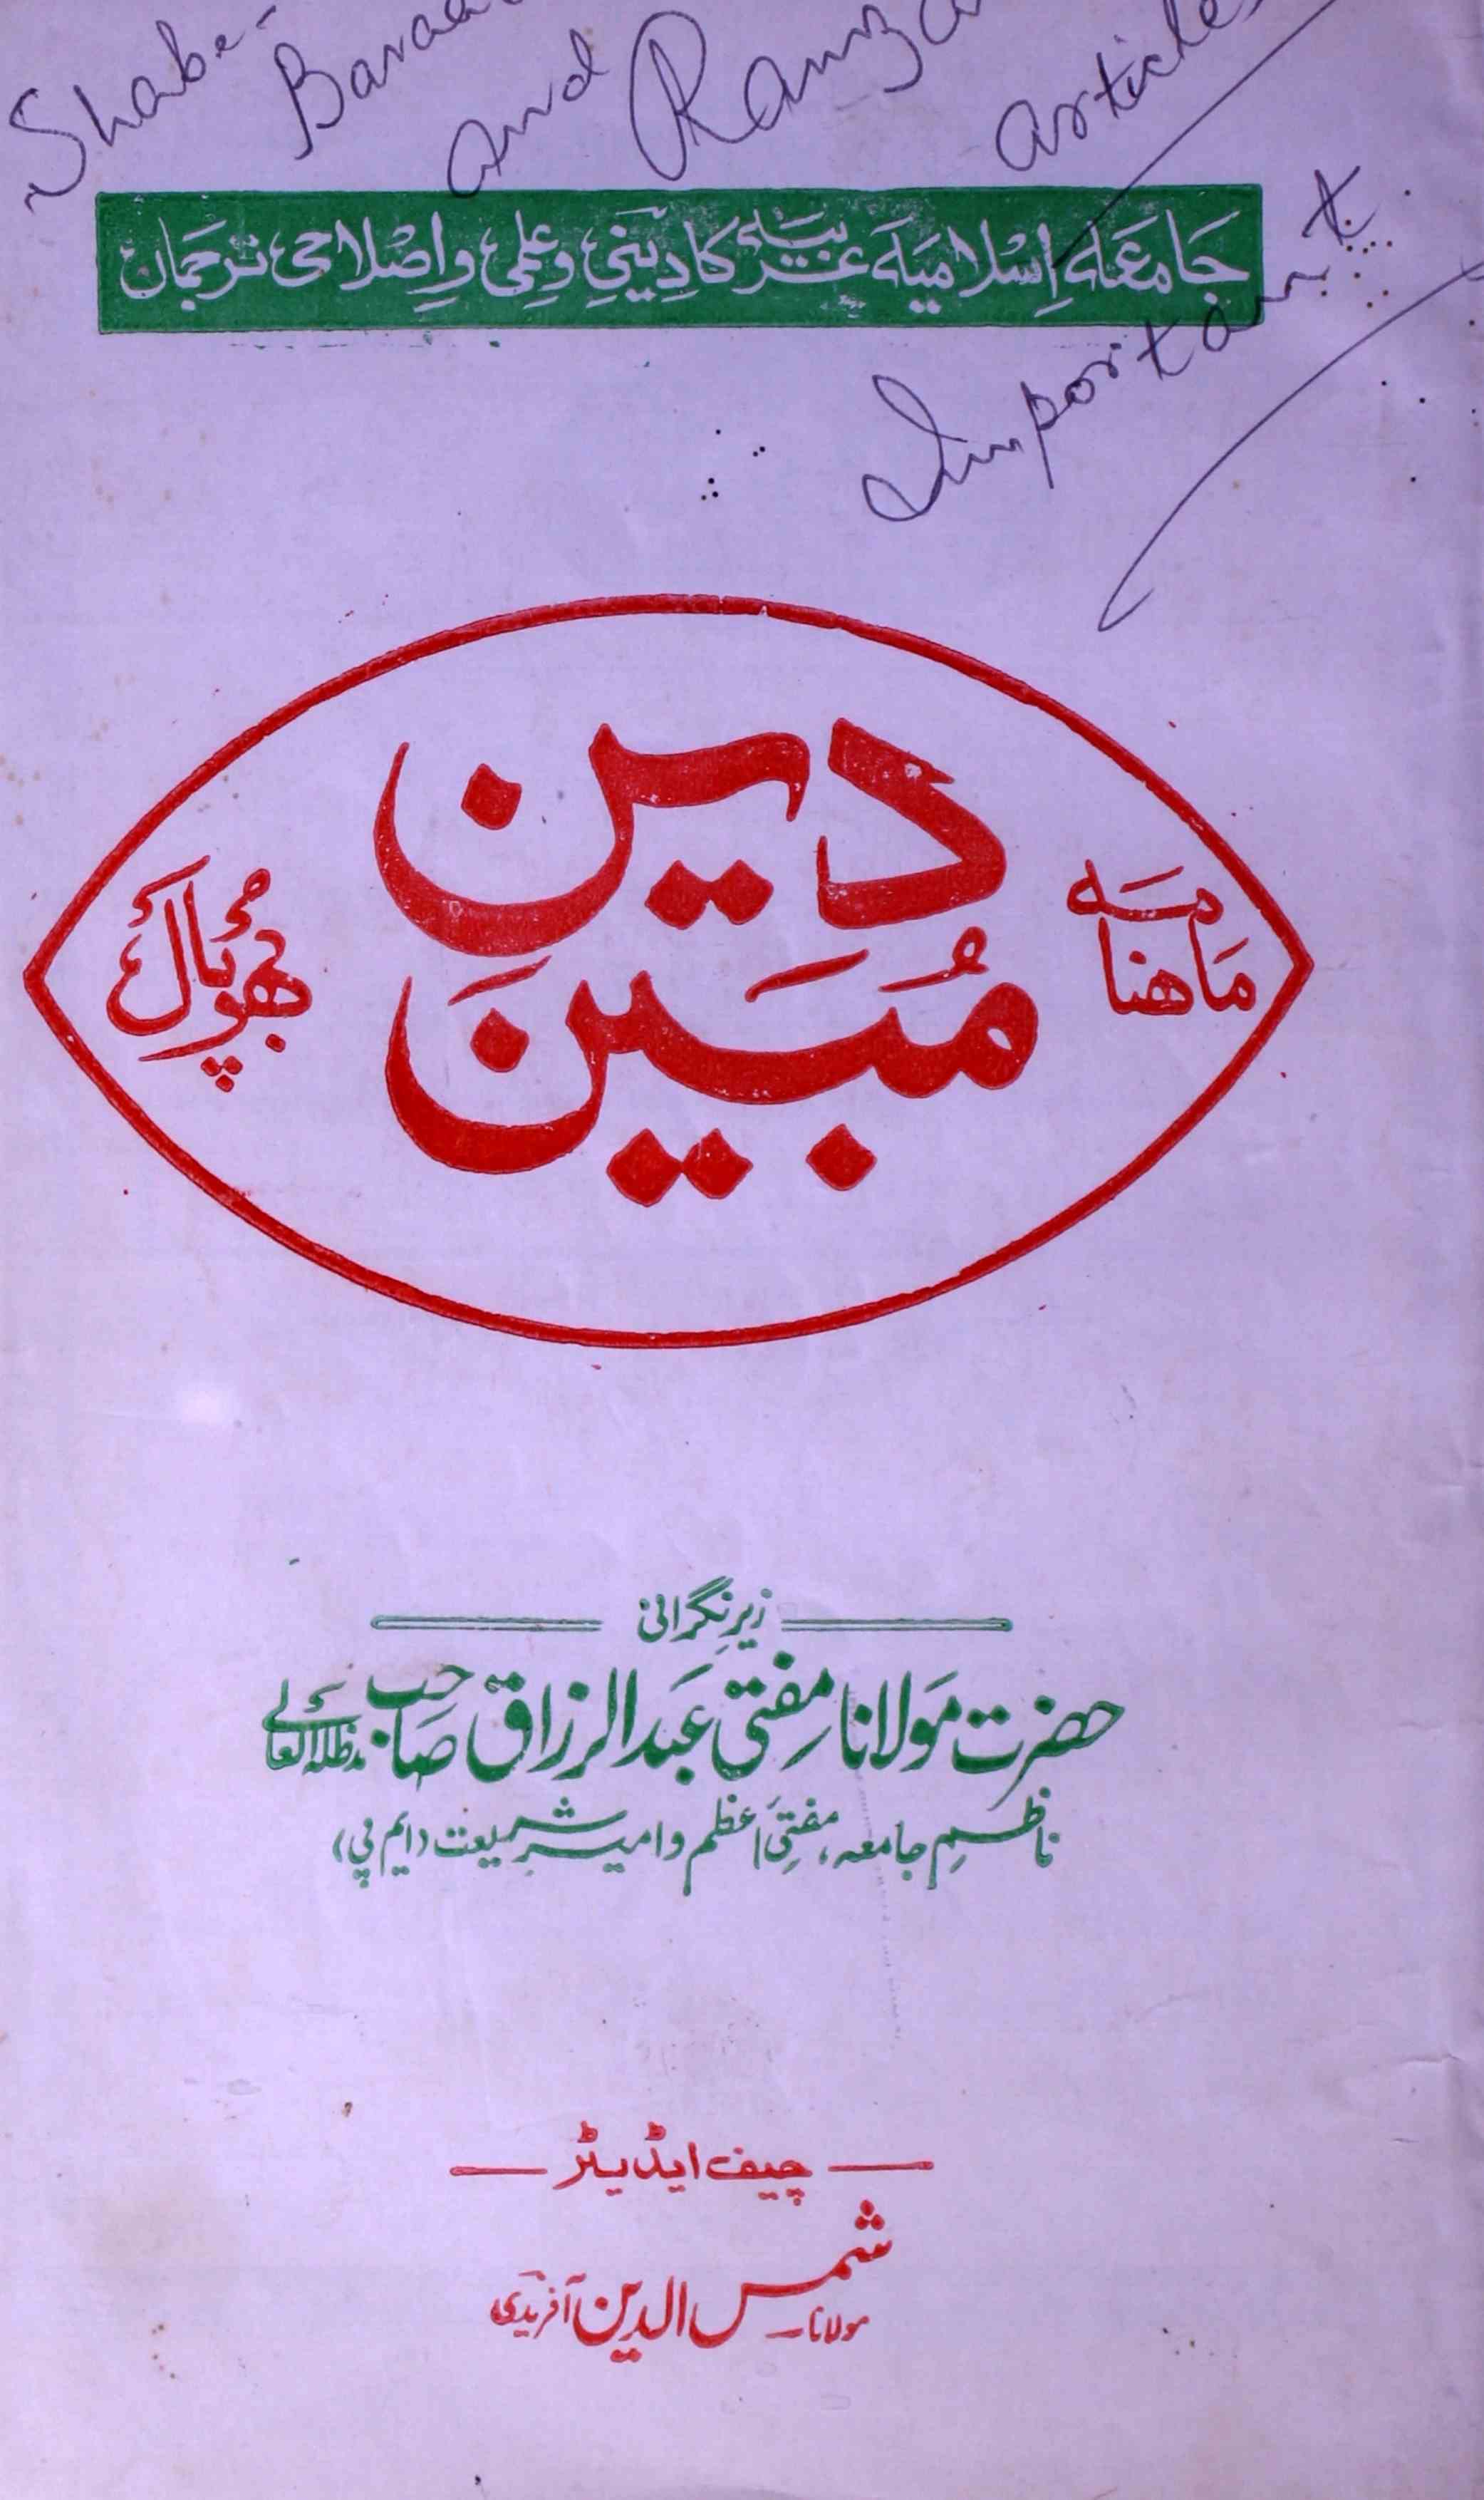 Shab-e-
Baraa
and Ramza
article
Important
جامعہ اسلامیہ عربیہ کا دینی و علمی و اصلاحی ترجمان
ماہنامہ
دین
مبین
بھوپال
زیر نگرانی
حضرت مولانا مفتی عبد الرزاق صاحب مدظلہ العالی
ناظم جامعہ، مفتی اعظم و امیر شریعت (ایم پی)
چیف ایڈیٹر
مولانا شمس الدین آفریدی